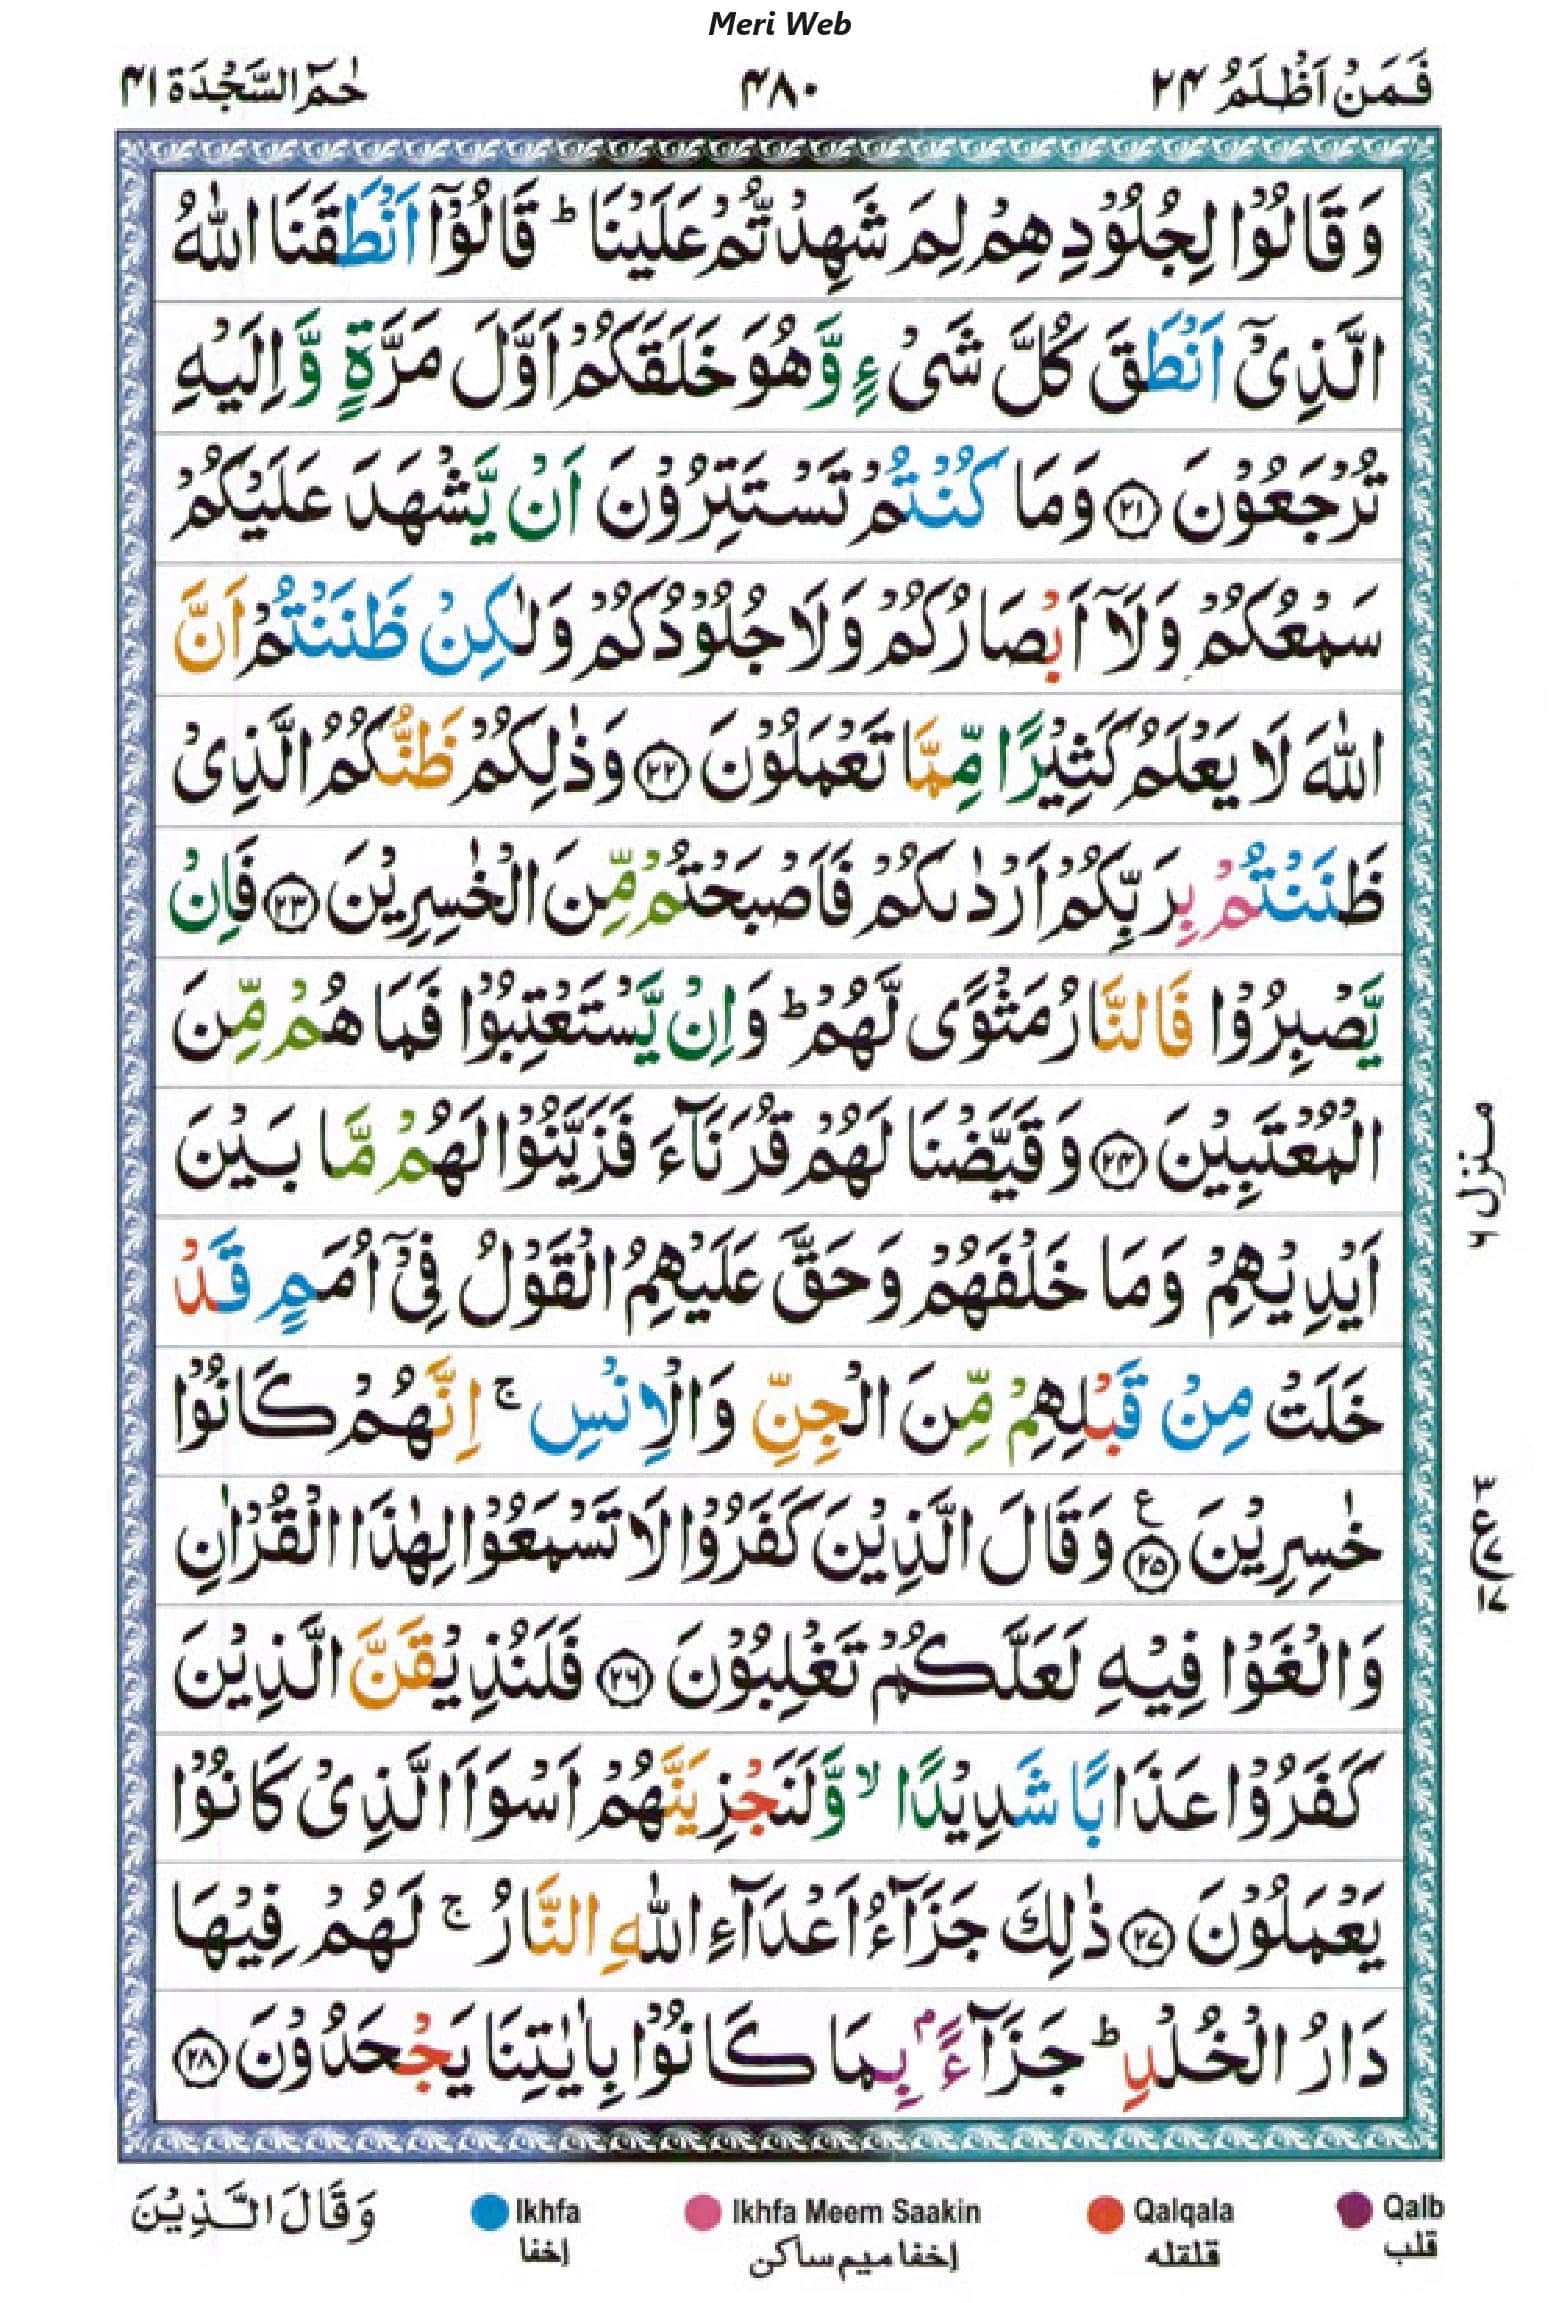 Meri Web
فَمَنْ اَظْلَمُ ٢٤
٤٨٠
حٰمٓ السَّجْدَة ٤١
وَقَالُوْا لِجُلُوْدِهِمْ لِمَ شَهِدْتُّمْ عَلَيْنَا ؕ قَالُوْۤا اَنْطَقَنَا اللّٰهُ
الَّذِىْۤ اَنْطَقَ كُلَّ شَىْءٍ وَّهُوَ خَلَقَكُمْ اَوَّلَ مَرَّةٍ وَّاِلَيْهِ
تُرْجَعُوْنَ ﴿٢١﴾ وَمَا كُنْتُمْ تَسْتَتِرُوْنَ اَنْ يَّشْهَدَ عَلَيْكُمْ
سَمْعُكُمْ وَلَاۤ اَبْصَارُكُمْ وَلَا جُلُوْدُكُمْ وَلٰكِنْ ظَنَنْتُمْ اَنَّ
اللّٰهَ لَا يَعْلَمُ كَثِيْرًا مِّمَّا تَعْمَلُوْنَ ﴿٢٢﴾ وَذٰلِكُمْ ظَنُّكُمُ الَّذِىْ
ظَنَنْتُمْ بِرَبِّكُمْ اَرْدٰىكُمْ فَاَصْبَحْتُمْ مِّنَ الْخٰسِرِيْنَ ﴿٢٣﴾ فَاِنْ
يَّصْبِرُوْا فَالنَّارُ مَثْوًى لَّهُمْ ؕ وَاِنْ يَّسْتَعْتِبُوْا فَمَا هُمْ مِّنَ
الْمُعْتَبِيْنَ ﴿٢٤﴾ وَقَيَّضْنَا لَهُمْ قُرَنَآءَ فَزَيَّنُوْا لَهُمْ مَّا بَيْنَ
اَيْدِيْهِمْ وَمَا خَلْفَهُمْ وَحَقَّ عَلَيْهِمُ الْقَوْلُ فِىْۤ اُمَمٍ قَدْ
خَلَتْ مِنْ قَبْلِهِمْ مِّنَ الْجِنِّ وَالْاِنْسِ ۚ اِنَّهُمْ كَانُوْا
خٰسِرِيْنَ ﴿٢٥﴾ ع وَقَالَ الَّذِيْنَ كَفَرُوْا لَا تَسْمَعُوْا لِهٰذَا الْقُرْاٰنِ
وَالْغَوْا فِيْهِ لَعَلَّكُمْ تَغْلِبُوْنَ ﴿٢٦﴾ فَلَنُذِيْقَنَّ الَّذِيْنَ
كَفَرُوْا عَذَابًا شَدِيْدًا ۙ وَّلَنَجْزِيَنَّهُمْ اَسْوَاَ الَّذِىْ كَانُوْا
يَعْمَلُوْنَ ﴿٢٧﴾ ذٰلِكَ جَزَآءُ اَعْدَآءِ اللّٰهِ النَّارُ ۚ لَهُمْ فِيْهَا
دَارُ الْخُلْدِ ؕ جَزَآءًۢ بِمَا كَانُوْا بِاٰيٰتِنَا يَجْحَدُوْنَ ﴿٢٨﴾
منزل ٦
٣ ع ١٧
Qalb
قلب
Qalqala
قلقله
Ikhfa Meem Saakin
إخفا ميم ساكن
Ikhfa
إخفا
وَقَالَ الَّذِيْنَ